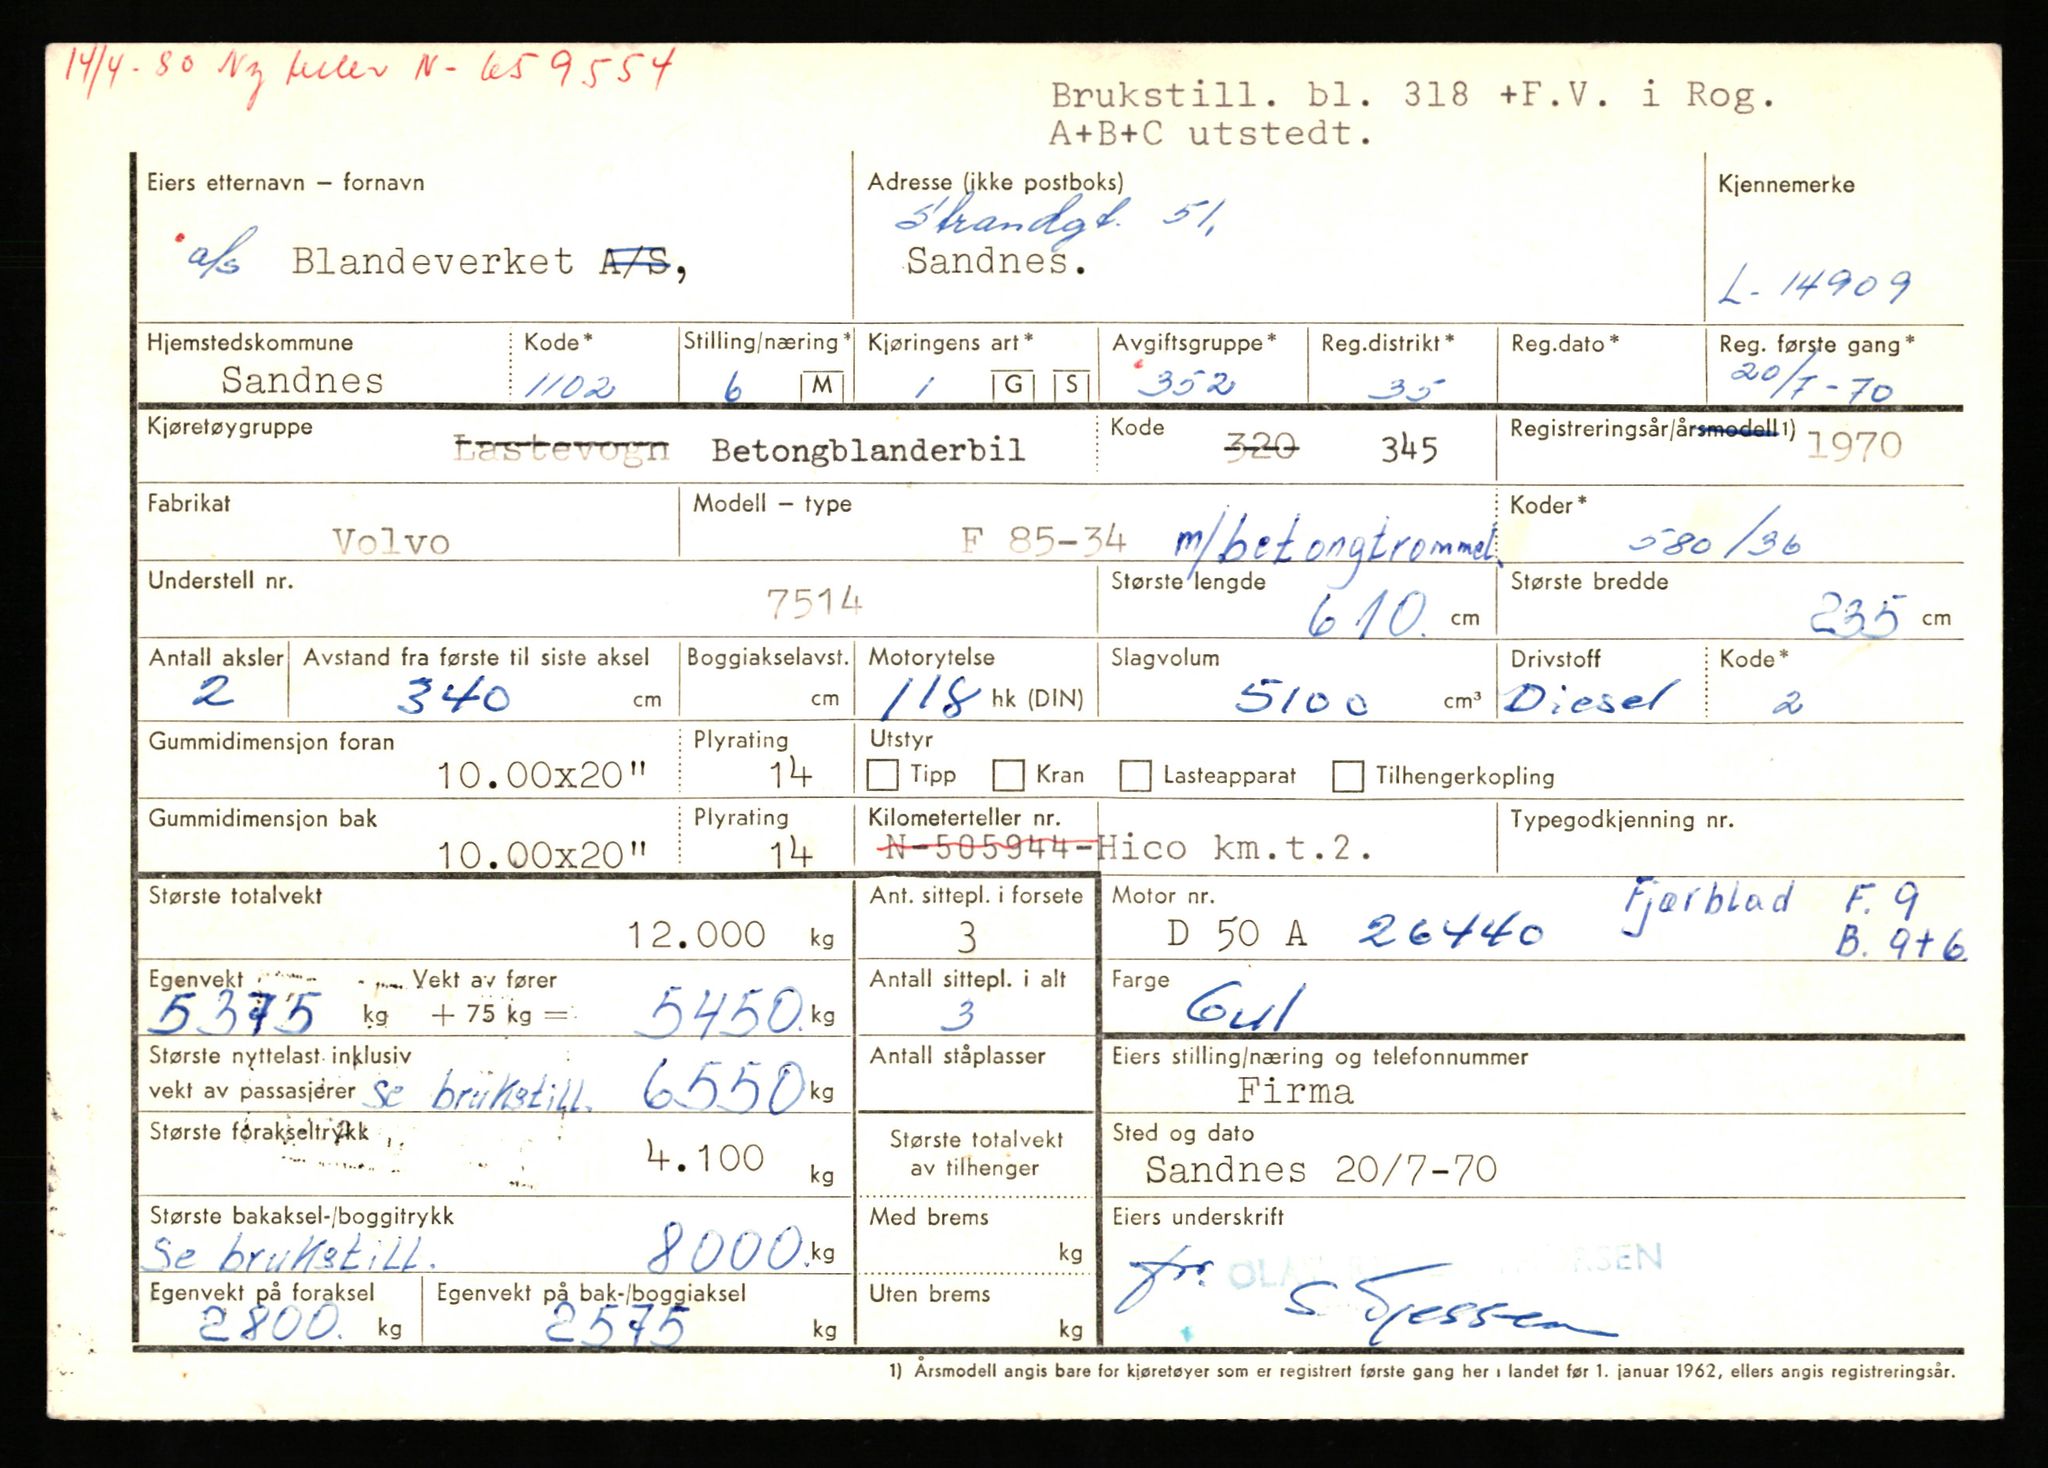 14/4-80 Ny teller N-659554
Brukstill. bl. 318 +F.V. i Rog.
A+B+C utstedt.
Eiers etternavn – fornavn
a/s Blandeverket A/S,
Adresse (ikke postboks)
Strandgt. 51,
Sandnes.
Kjennemerke
L-14909
Hjemstedskommune
Sandnes
Kode*
1102
Stilling/næring*
6 M
Kjøringens art*
1 G S
Avgiftsgruppe*
352
Reg.distrikt*
35
Reg.dato*
Reg. første gang*
20/7-70
Kjøretøygruppe
Lastevogn Betongblanderbil
Kode
320 345
Registreringsår/årsmodell 1)
1970
Fabrikat
Volvo
Modell – type
F 85-34 m/betongtrommel.
Koder*
580/36
Understell nr.
7514
Største lengde
610. cm
Største bredde
235 cm
Antall aksler
2
Avstand fra første til siste aksel
340 cm
Boggiakselavst.
cm
Motorytelse
118 hk (DIN)
Slagvolum
5100 cm³
Drivstoff
Diesel
Kode*
2
Gummidimensjon foran
10.00x20"
Plyrating
14
Utstyr
Tipp Kran Lasteapparat Tilhengerkopling
Gummidimensjon bak
10.00x20"
Plyrating
14
Kilometerteller nr.
N-505944-Hico km.t.2.
Typegodkjenning nr.
Største totalvekt
12.000 kg
Ant. sittepl. i forsete
3
Motor nr.
D 50 A 26440
Fjærblad F. 9
B. 9+6
Egenvekt Vekt av fører
5375 kg + 75 kg = 5450. kg
Antall sittepl. i alt
3
Farge
Gul
Største nyttelast inklusiv
vekt av passasjerer se brukstill. 6550 kg
Antall ståplasser
Eiers stilling/næring og telefonnummer
Firma
Største forakseltrykk
4.100 kg
Største totalvekt
av tilhenger
Sted og dato
Sandnes 20/7-70
Største bakaksel-/boggitrykk
Se brukstill. 8000. kg
Med brems
kg
Eiers underskrift
fr.
Egenvekt på foraksel
2800. kg
Egenvekt på bak-/boggiaksel
2575 kg
Uten brems
kg
1) Årsmodell angis bare for kjøretøyer som er registrert første gang her i landet før 1. januar 1962, ellers angis registreringsår.